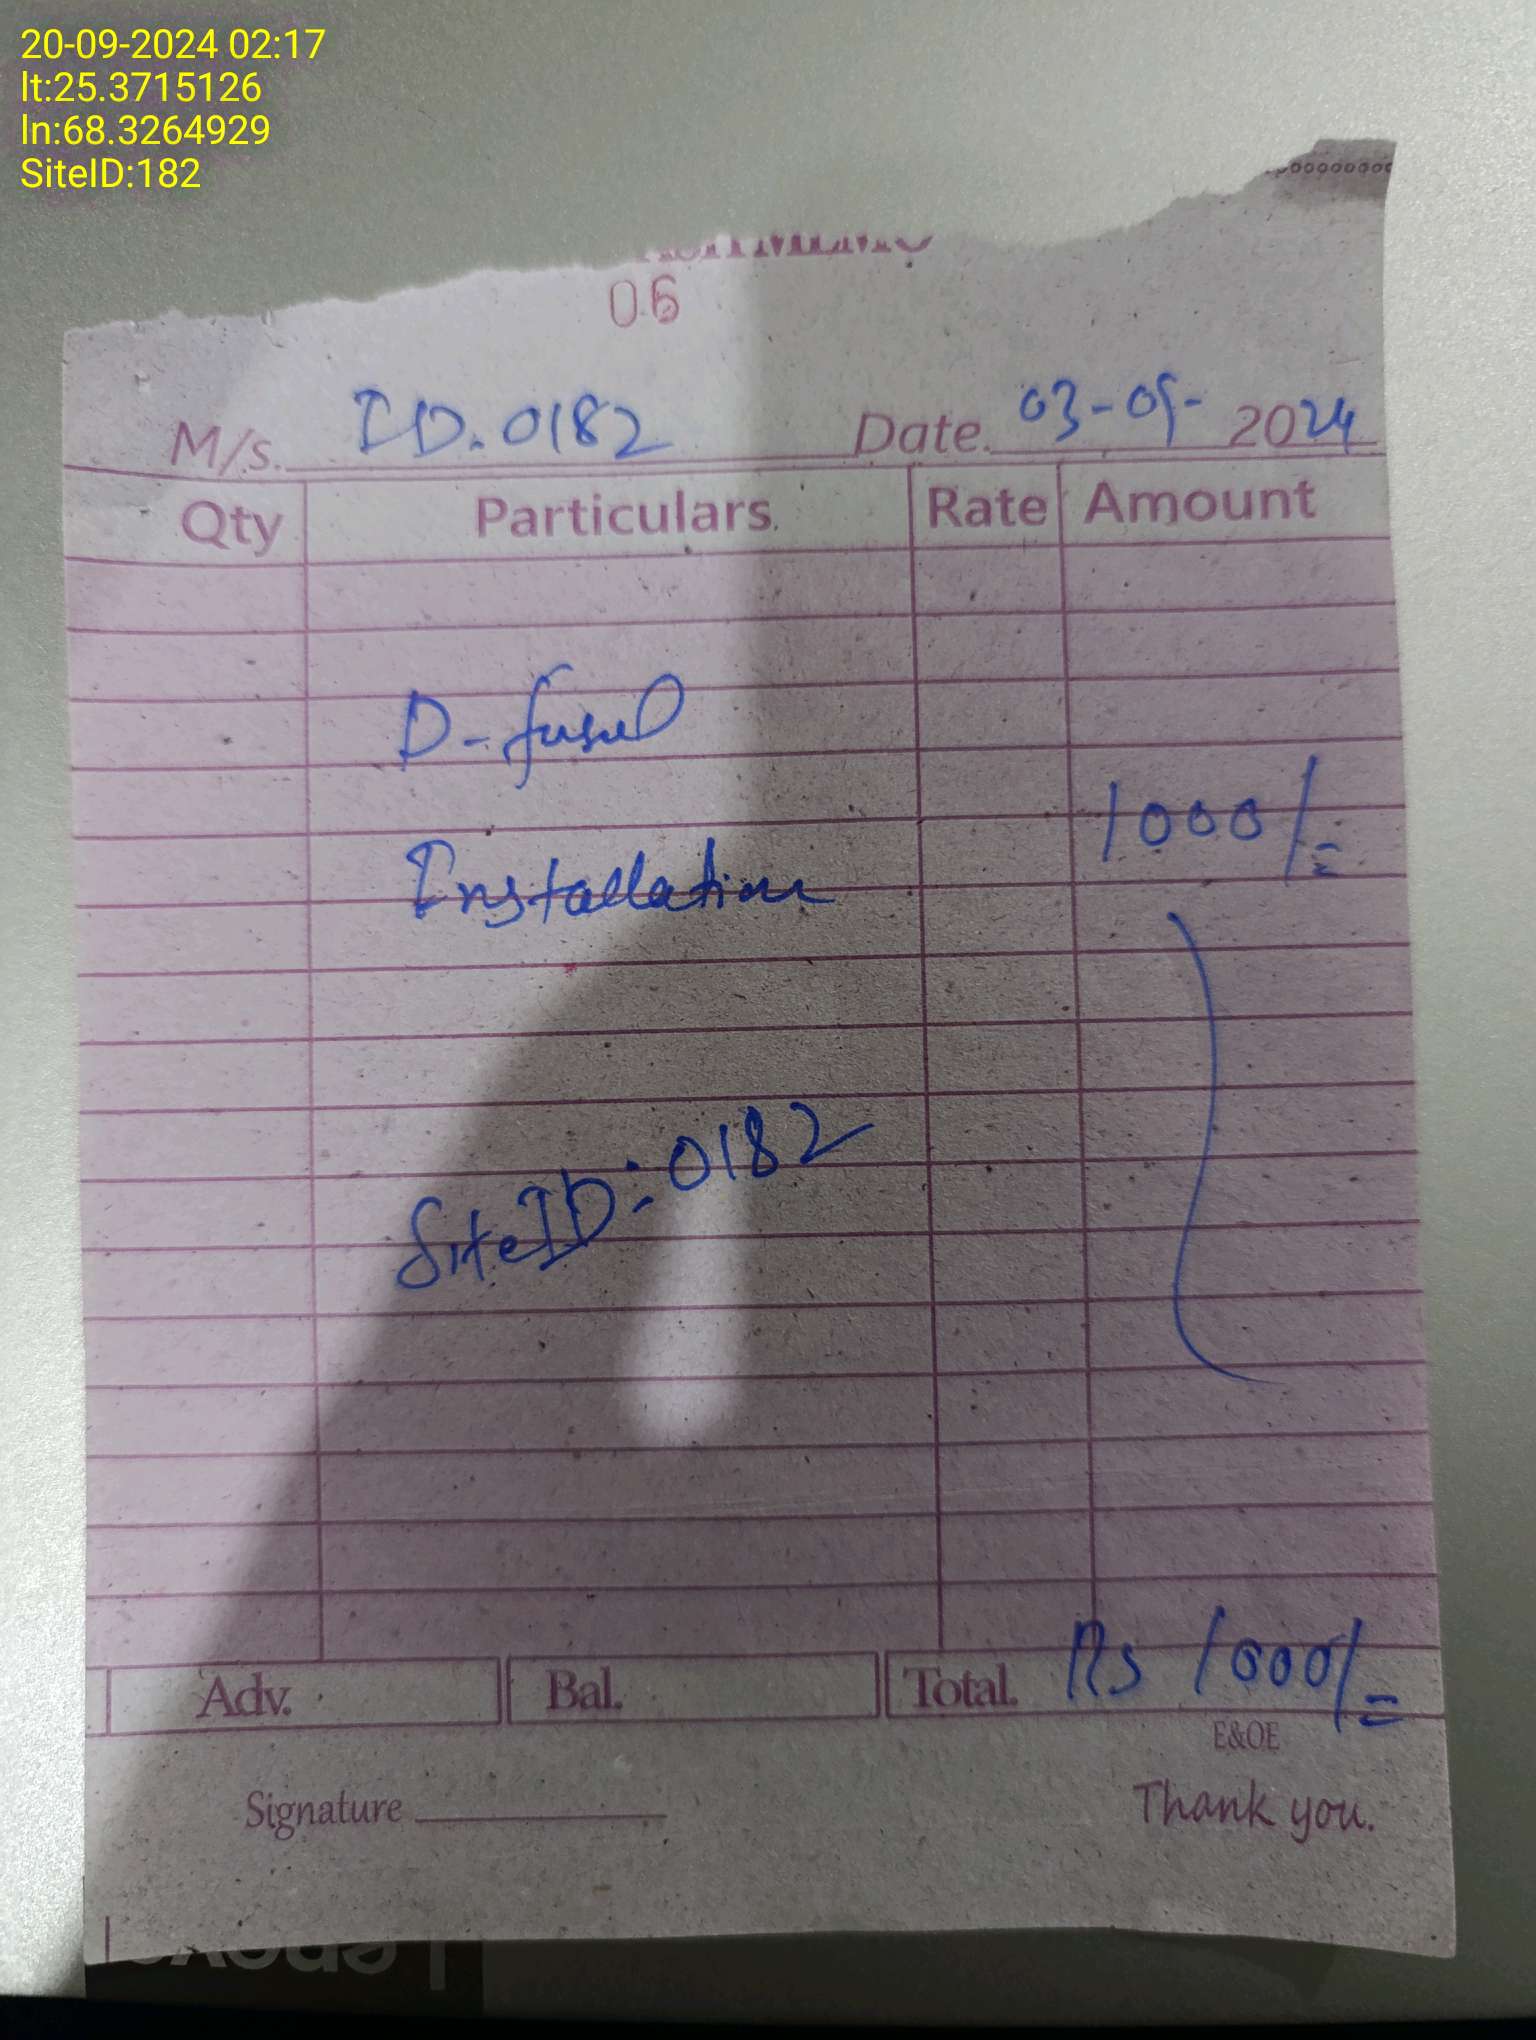 20-09-2024 02:17
lt:25.3715126
ln:68.3264929
SiteID:182
06
M/s. ID. 0182 Date. 03-09-2024
Qty Particulars. Rate Amount
D-fusel
1000/=
Installation
SiteID: 0182
Adv. Bal. Total. Rs 1000/=
E&OE
Signature Thank you.